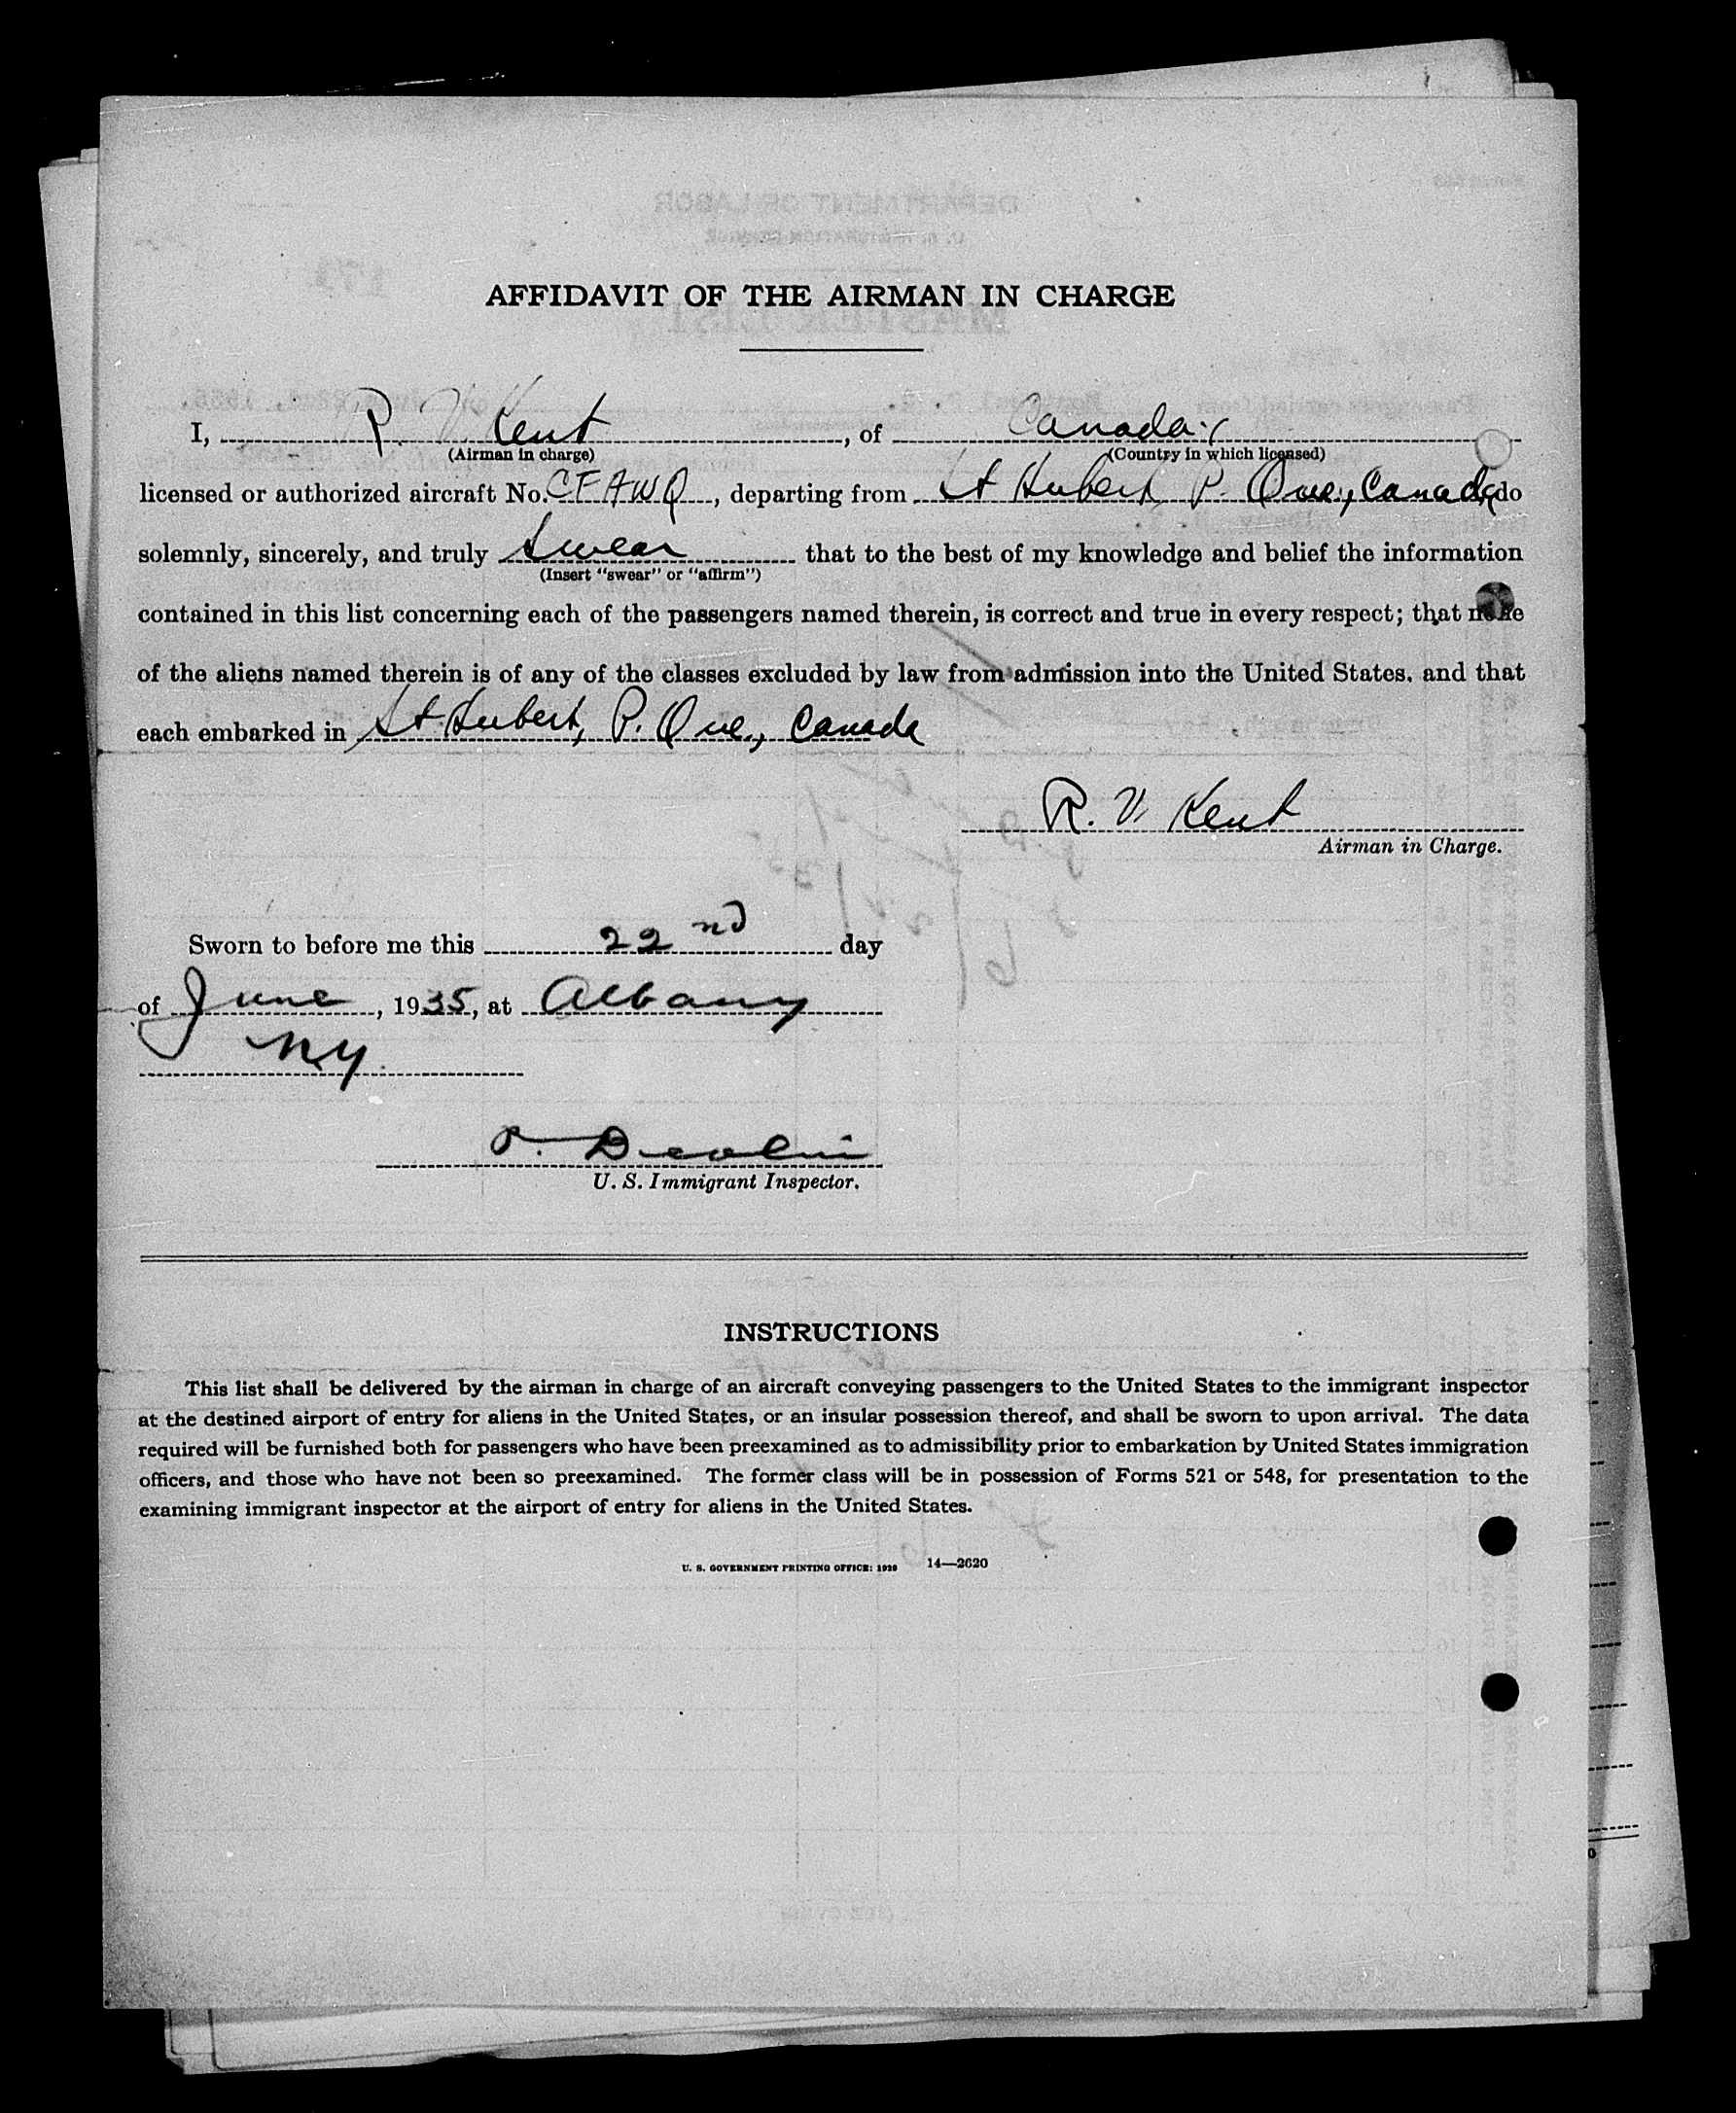 AFFIDAVIT OF THE AIRMAN IN CHARGE
I, R. V. Kent, of Canada
(Airman in charge) (Country in which licensed)
licensed or authorized aircraft No. CFAWQ, departing from St Hubert P. Que., Canada, do
solemnly, sincerely, and truly Swear that to the best of my knowledge and belief the information
(Insert "swear" or "affirm")
contained in this list concerning each of the passengers named therein, is correct and true in every respect; that none
of the aliens named therein is of any of the classes excluded by law from admission into the United States, and that
each embarked in St Hubert, P. Que., Canada
R. V. Kent
Airman in Charge.
Sworn to before me this 22nd day
of June, 1935, at Albany
NY.
P. Devlin
U. S. Immigrant Inspector.
INSTRUCTIONS
This list shall be delivered by the airman in charge of an aircraft conveying passengers to the United States to the immigrant inspector
at the destined airport of entry for aliens in the United States, or an insular possession thereof, and shall be sworn to upon arrival. The data
required will be furnished both for passengers who have been preexamined as to admissibility prior to embarkation by United States immigration
officers, and those who have not been so preexamined. The former class will be in possession of Forms 521 or 548, for presentation to the
examining immigrant inspector at the airport of entry for aliens in the United States.
U. S. GOVERNMENT PRINTING OFFICE: 1929 14—2620